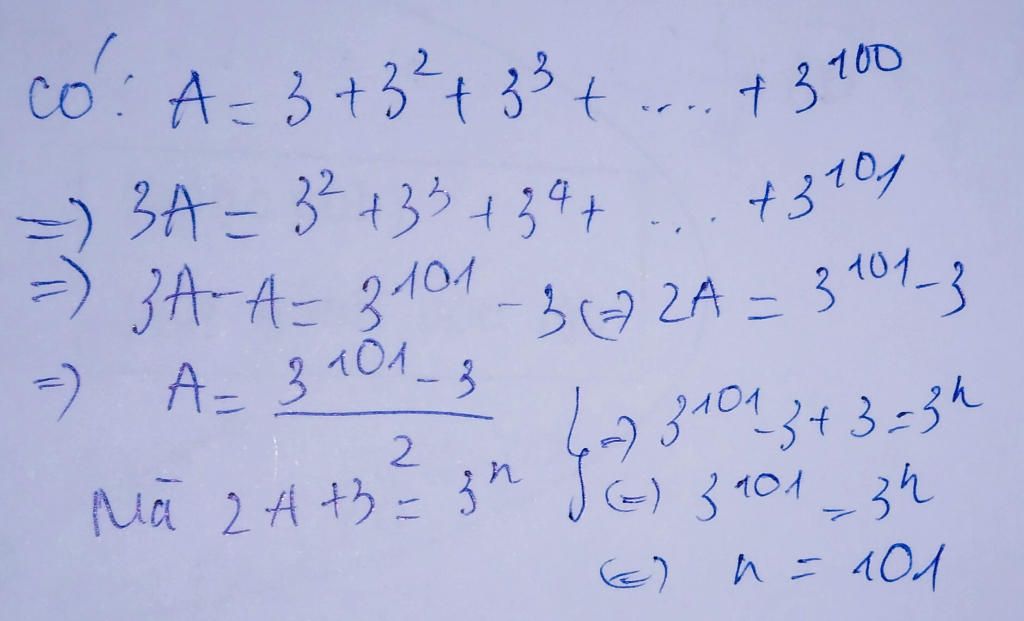 có: A = 3 + 3² + 3³ + .... + 3¹⁰⁰
=) 3A = 3² + 3³ + 3⁴ + ... + 3¹⁰¹
=) 3A - A = 3¹⁰¹ - 3 (=) 2A = 3¹⁰¹ - 3
=) A = (3¹⁰¹ - 3)/2
Mà 2A + 3 = 3ⁿ
=) 3¹⁰¹ - 3 + 3 = 3ⁿ
(=) 3¹⁰¹ = 3ⁿ
(=) n = 101